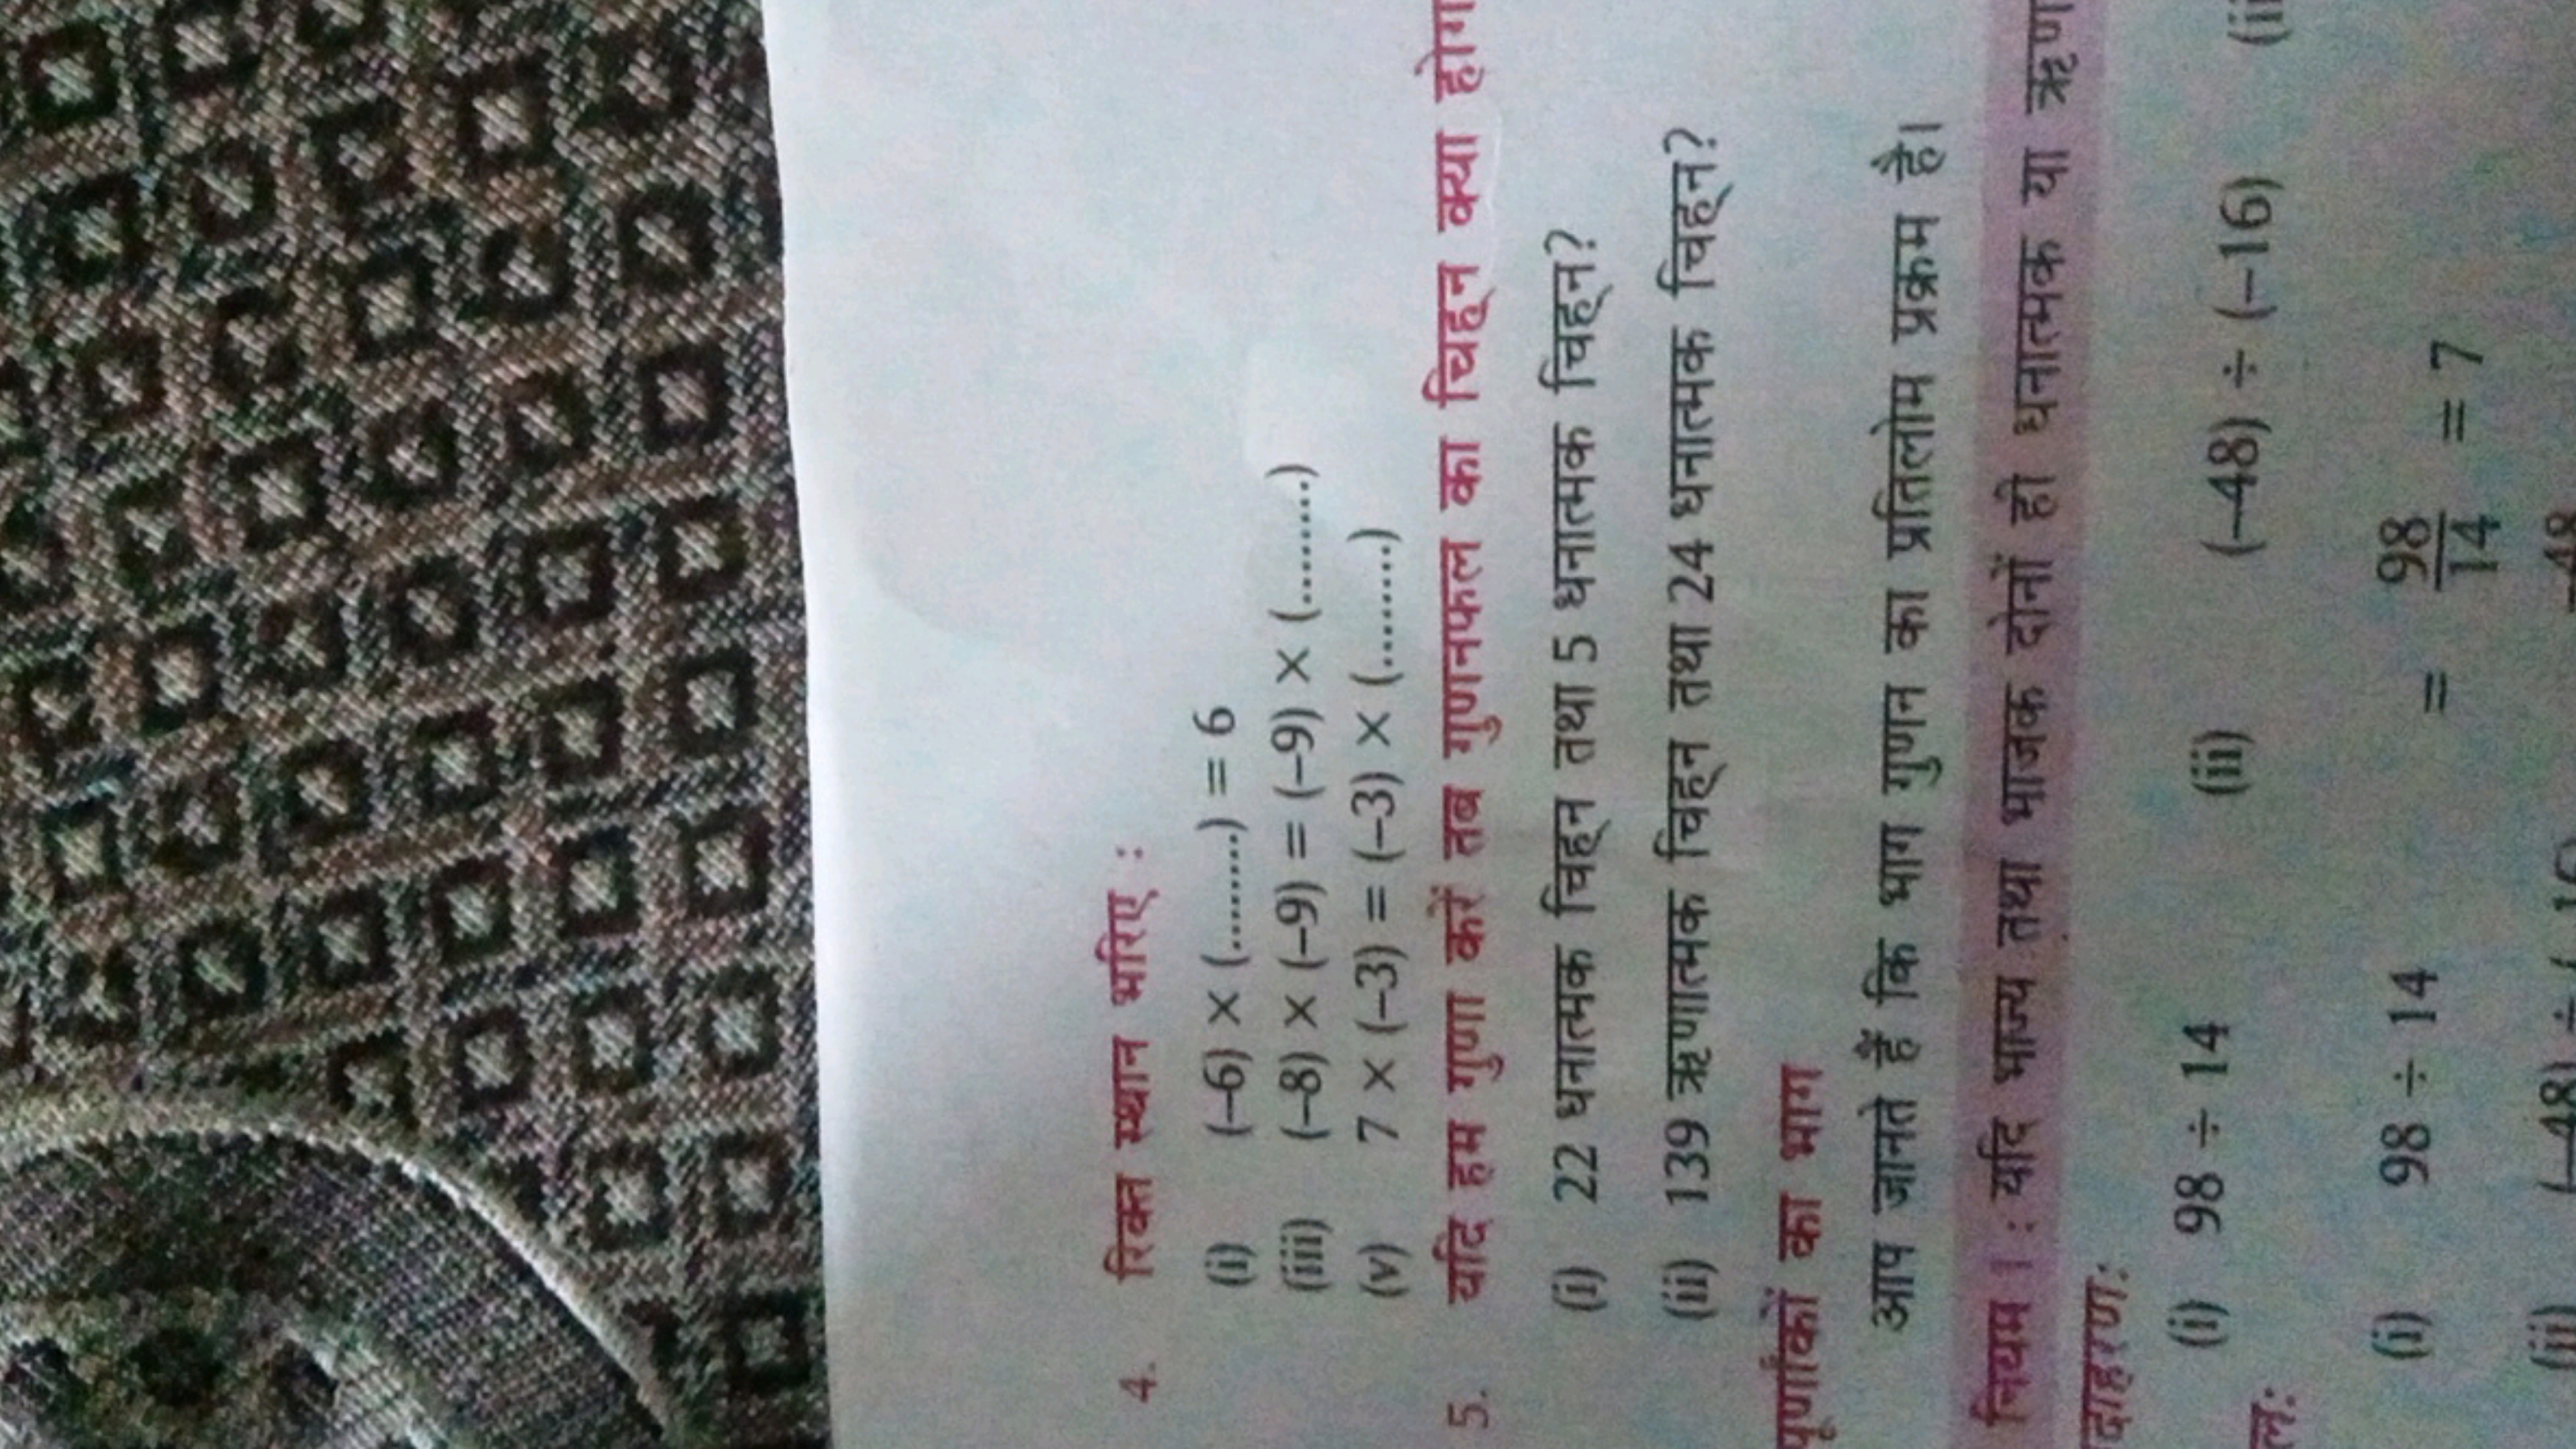 4. रिक्त स्थान भरिए :
(i) (–6) × (.........) = 6
(iii) (–8) × (–9) = (–9) × (.........)
(v) 7 × (–3) = (–3) × (.........)
5. यदि हम गुणा करें तब गुणनफल का चिह्न क्या
(i) 22 धनात्मक चिह्न तथा 5 धनात्मक चिह्न?
(ii) 139 ऋणात्मक चिह्न तथा 24 धनात्मक चिह्न?
पूर्णांकों का भाग
आप जानते हैं कि भाग गुणन का प्रतिलोम प्रक्रम है।
नियम । : यदि भाज्य तथा भाजक दोनों ही धनात्मक या
(i) 98 ÷ 14 (ii) (–48) ÷ (–16)
(i) 98 ÷ 14 = 98/14 = 7